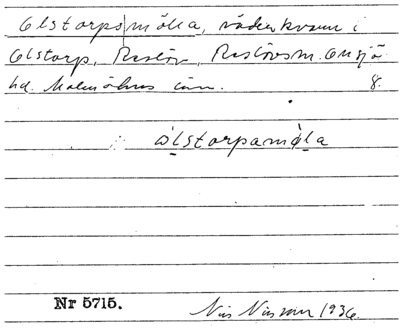 Olstorpsmölla, väderkvarn i
Olstorp, Reslöv, Reslövs sn. Onsjö
hd. Malmöhus län. 8.
ólstorpamǿla
Nr 5715.
Nils Nilsson 1936.